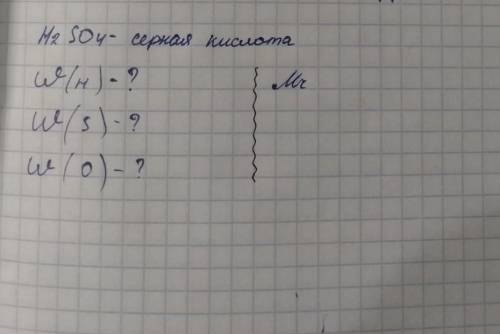 H2SO4 - серная кислота
W(H) - ?
Mr
W(S) - ?
W(O) - ?